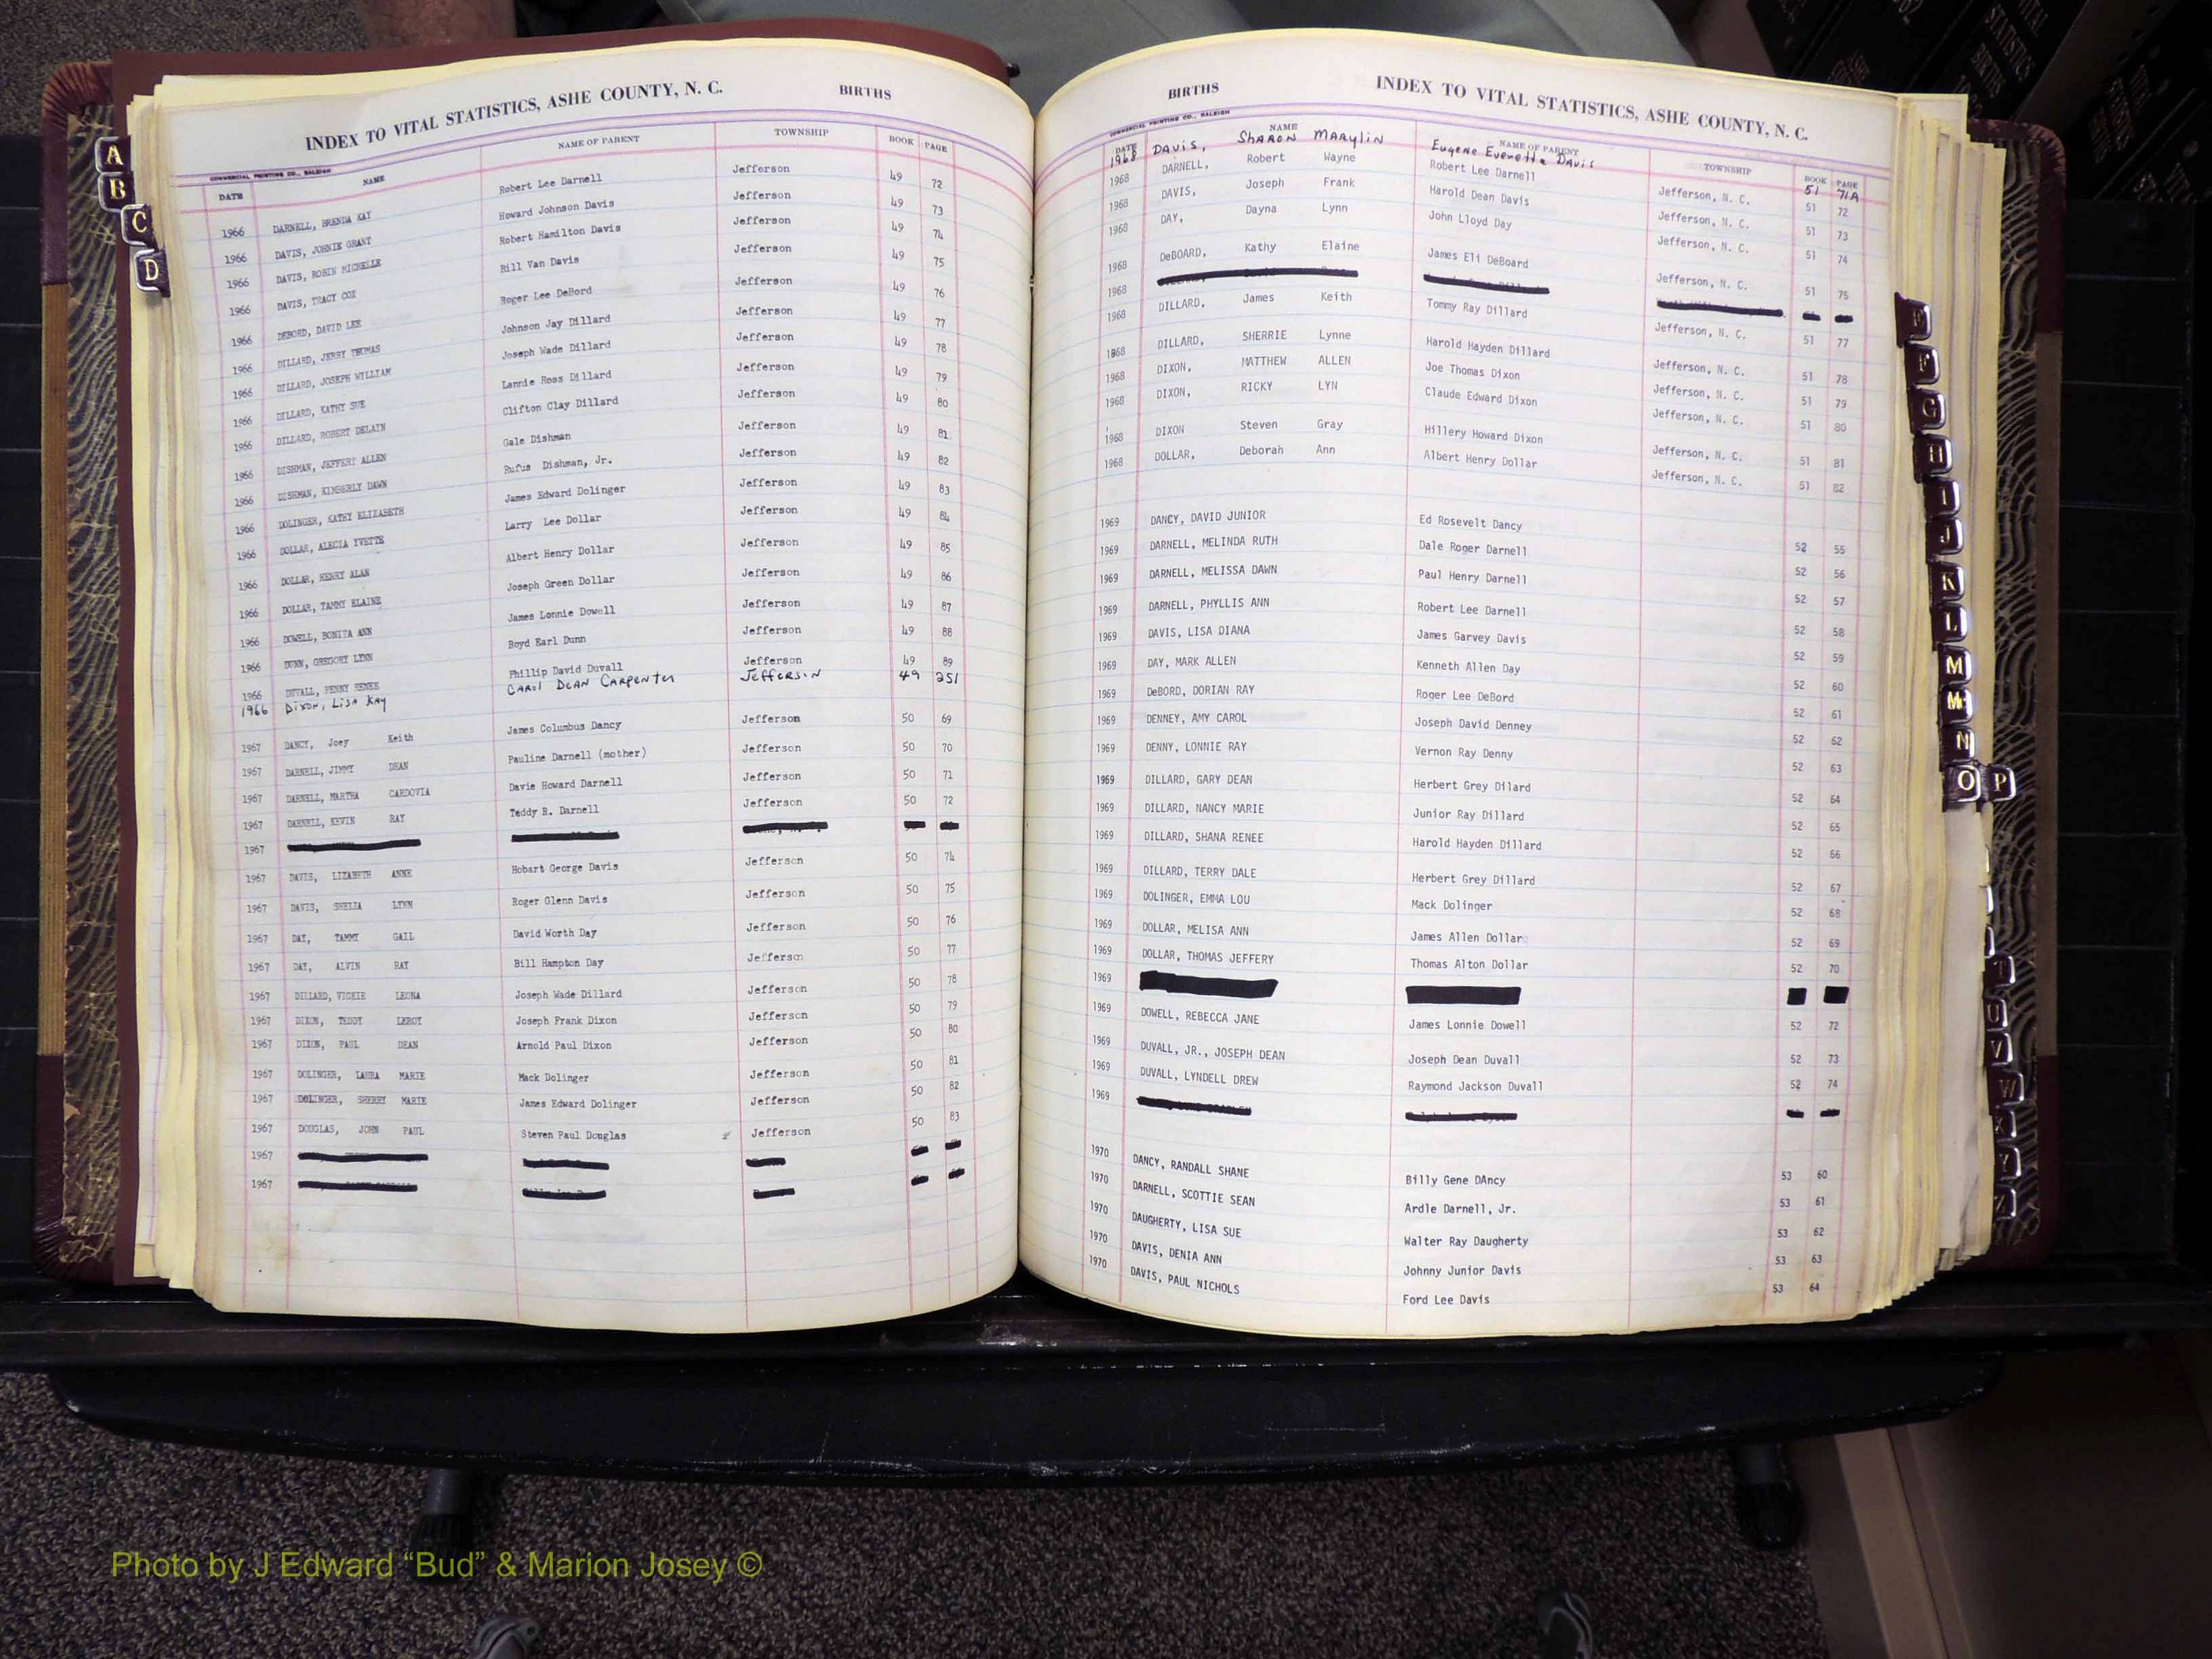 INDEX TO VITAL STATISTICS, ASHE COUNTY, N. C. BIRTHS
COMMERCIAL PRINTING CO., RALEIGH
DATE NAME NAME OF PARENT TOWNSHIP BOOK PAGE
1966 DARNELL, BRENDA KAY Robert Lee Darnell Jefferson 49 72
1966 DAVIS, JOHNIE GRANT Howard Johnson Davis Jefferson 49 73
1966 DAVIS, ROBIN MICHELLE Robert Hamilton Davis Jefferson 49 74
1966 DAVIS, TRACY COX Bill Van Davis Jefferson 49 75
1966 DEBORD, DAVID LEE Roger Lee DeBord Jefferson 49 76
1966 DILLARD, JERRY THOMAS Johnson Jay Dillard Jefferson 49 77
1966 DILLARD, JOSEPH WILLIAM Joseph Wade Dillard Jefferson 49 78
1966 DILLARD, KATHY SUE Lannie Ross Dillard Jefferson 49 79
1966 DILLARD, ROBERT DELAIN Clifton Clay Dillard Jefferson 49 80
1966 DISHMAN, JEFFERY ALLEN Gale Dishman Jefferson 49 81
1966 DISHMAN, KIMBERLY DAWN Rufus Dishman, Jr. Jefferson 49 82
1966 DOLINGER, KATHY ELIZABETH James Edward Dolinger Jefferson 49 83
1966 DOLLAR, ALECIA YVETTE Larry Lee Dollar Jefferson 49 84
1966 DOLLAR, HENRY ALAN Albert Henry Dollar Jefferson 49 85
1966 DOLLAR, TAMMY ELAINE Joseph Green Dollar Jefferson 49 86
1966 DOWELL, BONITA ANN James Lonnie Dowell Jefferson 49 87
1966 DUNN, GREGORY LYNN Boyd Earl Dunn Jefferson 49 88
1966 DUVALL, PENNY RENEE Phillip David Duvall Jefferson 49 89
1966 Dixon, Lisa Kay Carol Dean Carpenter Jefferson 49 251
1967 DANCY, Joey Keith James Columbus Dancy Jefferson 50 69
1967 DARNELL, JIMMY DEAN Pauline Darnell (mother) Jefferson 50 70
1967 DARNELL, MARTHA CARDOVIA Davie Howard Darnell Jefferson 50 71
1967 DARNELL, KEVIN RAY Teddy R. Darnell Jefferson 50 72
1967
1967 DAVIS, LIZABETH ANNE Hobart George Davis Jefferson 50 74
1967 DAVIS, SHELIA LYNN Roger Glenn Davis Jefferson 50 75
1967 DAY, TAMMY GAIL David Worth Day Jefferson 50 76
1967 DAY, ALVIN RAY Bill Hampton Day Jefferson 50 77
1967 DILLARD, VICKIE LEONA Joseph Wade Dillard Jefferson 50 78
1967 DIXON, TEDDY LEROY Joseph Frank Dixon Jefferson 50 79
1967 DIXON, PAUL DEAN Arnold Paul Dixon Jefferson 50 80
1967 DOLINGER, LAURA MARIE Mack Dolinger Jefferson 50 81
1967 DOLINGER, SHERRY MARIE James Edward Dolinger Jefferson 50 82
1967 DOUGLAS, JOHN PAUL Steven Paul Douglas Jefferson 50 83
1967
1967
BIRTHS INDEX TO VITAL STATISTICS, ASHE COUNTY, N. C.
COMMERCIAL PRINTING CO., RALEIGH
DATE NAME NAME OF PARENT TOWNSHIP BOOK PAGE
1968 DAVIS, SHARON MARYLIN Eugene Everette Davis 51 71A
1968 DARNELL, Robert Wayne Robert Lee Darnell Jefferson, N. C. 51 72
1968 DAVIS, Joseph Frank Harold Dean Davis Jefferson, N. C. 51 73
1968 DAY, Dayna Lynn John Lloyd Day Jefferson, N. C. 51 74
1968 DeBOARD, Kathy Elaine James Eli DeBoard Jefferson, N. C. 51 75
1968
1968 DILLARD, James Keith Tommy Ray Dillard Jefferson, N. C. 51 77
1968 DILLARD, SHERRIE Lynne Harold Hayden Dillard Jefferson, N. C. 51 78
1968 DIXON, MATTHEW ALLEN Joe Thomas Dixon Jefferson, N. C. 51 79
1968 DIXON, RICKY LYN Claude Edward Dixon Jefferson, N. C. 51 80
1968 DIXON Steven Gray Hillery Howard Dixon Jefferson, N. C. 51 81
1968 DOLLAR, Deborah Ann Albert Henry Dollar Jefferson, N. C. 51 82
1969 DANCY, DAVID JUNIOR Ed Rosevelt Dancy 52 55
1969 DARNELL, MELINDA RUTH Dale Roger Darnell 52 56
1969 DARNELL, MELISSA DAWN Paul Henry Darnell 52 57
1969 DARNELL, PHYLLIS ANN Robert Lee Darnell 52 58
1969 DAVIS, LISA DIANA James Garvey Davis 52 59
1969 DAY, MARK ALLEN Kenneth Allen Day 52 60
1969 DeBORD, DORIAN RAY Roger Lee DeBord 52 61
1969 DENNEY, AMY CAROL Joseph David Denney 52 62
1969 DENNY, LONNIE RAY Vernon Ray Denny 52 63
1969 DILLARD, GARY DEAN Herbert Grey Dilard 52 64
1969 DILLARD, NANCY MARIE Junior Ray Dillard 52 65
1969 DILLARD, SHANA RENEE Harold Hayden Dillard 52 66
1969 DILLARD, TERRY DALE Herbert Grey Dillard 52 67
1969 DOLINGER, EMMA LOU Mack Dolinger 52 68
1969 DOLLAR, MELISA ANN James Allen Dollar 52 69
1969 DOLLAR, THOMAS JEFFERY Thomas Alton Dollar 52 70
1969
1969 DOWELL, REBECCA JANE James Lonnie Dowell 52 72
1969 DUVALL, JR., JOSEPH DEAN Joseph Dean Duvall 52 73
1969 DUVALL, LYNDELL DREW Raymond Jackson Duvall 52 74
1969
1970 DANCY, RANDALL SHANE Billy Gene DAncy 53 60
1970 DARNELL, SCOTTIE SEAN Ardle Darnell, Jr. 53 61
1970 DAUGHERTY, LISA SUE Walter Ray Daugherty 53 62
1970 DAVIS, DENIA ANN Johnny Junior Davis 53 63
1970 DAVIS, PAUL NICHOLS Ford Lee Davis 53 64
A
B
C
D
F
G
H
I
J
K
L
M
Mc
N
O P
T
U
V
W
Y
Z
VITAL STATISTICS
Photo by J Edward “Bud” & Marion Josey ©